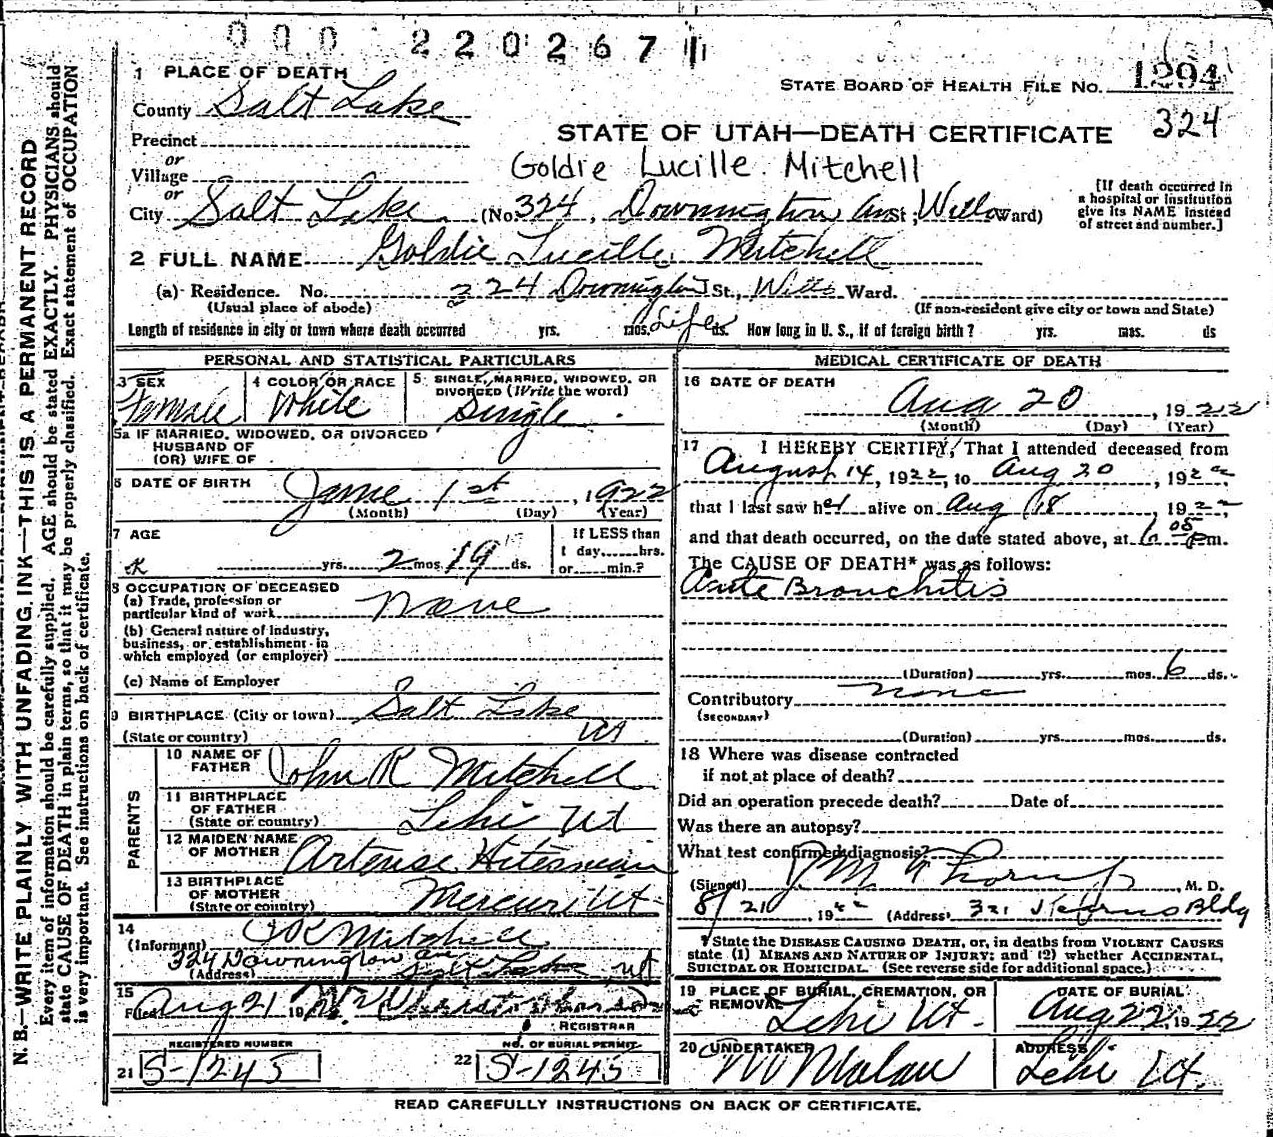 000 220267 1
1 PLACE OF DEATH
STATE BOARD OF HEALTH FILE NO. 1294
County Salt Lake
324
STATE OF UTAH—DEATH CERTIFICATE
Precinct
or
Goldie Lucille Mitchell
Village
or
[If death occurred in a hospital or institution give its NAME instead of street and number.]
City Salt Lake (No. 324, Downington Ave St., Ward)
2 FULL NAME Goldie Lucille Mitchell
(a) Residence. No. 324 Downington St., Ward.
(Usual place of abode) (If non-resident give city or town and State)
Length of residence in city or town where death occurred yrs. mos. Life ds. How long in U. S., if of foreign birth? yrs. mos. ds
PERSONAL AND STATISTICAL PARTICULARS
3 SEX
Female
4 COLOR OR RACE
White
5 SINGLE, MARRIED, WIDOWED, OR DIVORCED (Write the word)
Single
5a IF MARRIED, WIDOWED, OR DIVORCED
HUSBAND OF
(OR) WIFE OF
6 DATE OF BIRTH June 1st, 1922
(Month) (Day) (Year)
7 AGE
yrs. 2 mos. 19 ds.
If LESS than
1 day, hrs.
or min.?
8 OCCUPATION OF DECEASED
(a) Trade, profession or
particular kind of work None
(b) General nature of industry,
business, or establishment in
which employed (or employer)
(c) Name of Employer
9 BIRTHPLACE (City or town) Salt Lake
(State or country) Ut
PARENTS
10 NAME OF FATHER John R Mitchell
11 BIRTHPLACE OF FATHER
(State or country) Lehi Ut
12 MAIDEN NAME OF MOTHER Artense
13 BIRTHPLACE OF MOTHER
(State or country) Mercur Ut
14
(Informant) Mitchell
(Address) 324 Downington Ave
Salt Lake, Ut
15
Filed Aug 21 19
REGISTRAR
REGISTERED NUMBER
21 S-1245
NO. OF BURIAL PERMIT
22 S-1245
MEDICAL CERTIFICATE OF DEATH
16 DATE OF DEATH
Aug 20, 1922
(Month) (Day) (Year)
17 I HEREBY CERTIFY, That I attended deceased from
August 14, 1922, to Aug 20, 1922
that I last saw her alive on Aug 18, 1922,
and that death occurred, on the date stated above, at 6 05 P m.
The CAUSE OF DEATH* was as follows:
Acute Bronchitis
(Duration) yrs. mos. 6 ds.
Contributory none
(SECONDARY)
(Duration) yrs. mos. ds.
18 Where was disease contracted
if not at place of death?
Did an operation precede death? Date of
Was there an autopsy?
What test confirmed diagnosis?
(Signed) , M. D.
8/21 1922 (Address) 321 Bldg
*State the DISEASE CAUSING DEATH, or, in deaths from VIOLENT CAUSES
state (1) MEANS AND NATURE OF INJURY; and (2) whether ACCIDENTAL,
SUICIDAL OR HOMICIDAL. (See reverse side for additional space.)
19 PLACE OF BURIAL, CREMATION, OR REMOVAL
Lehi Ut.
DATE OF BURIAL
Aug 22, 1922
20 UNDERTAKER
Malan
ADDRESS
Lehi Ut.
READ CAREFULLY INSTRUCTIONS ON BACK OF CERTIFICATE.
N. B.—WRITE PLAINLY WITH UNFADING INK—THIS IS A PERMANENT RECORD
Every item of information should be carefully supplied. AGE should be stated EXACTLY. PHYSICIANS should
state CAUSE OF DEATH in plain terms, so that it may be properly classified. Exact statement of OCCUPATION
is very important. See instructions on back of certificate.